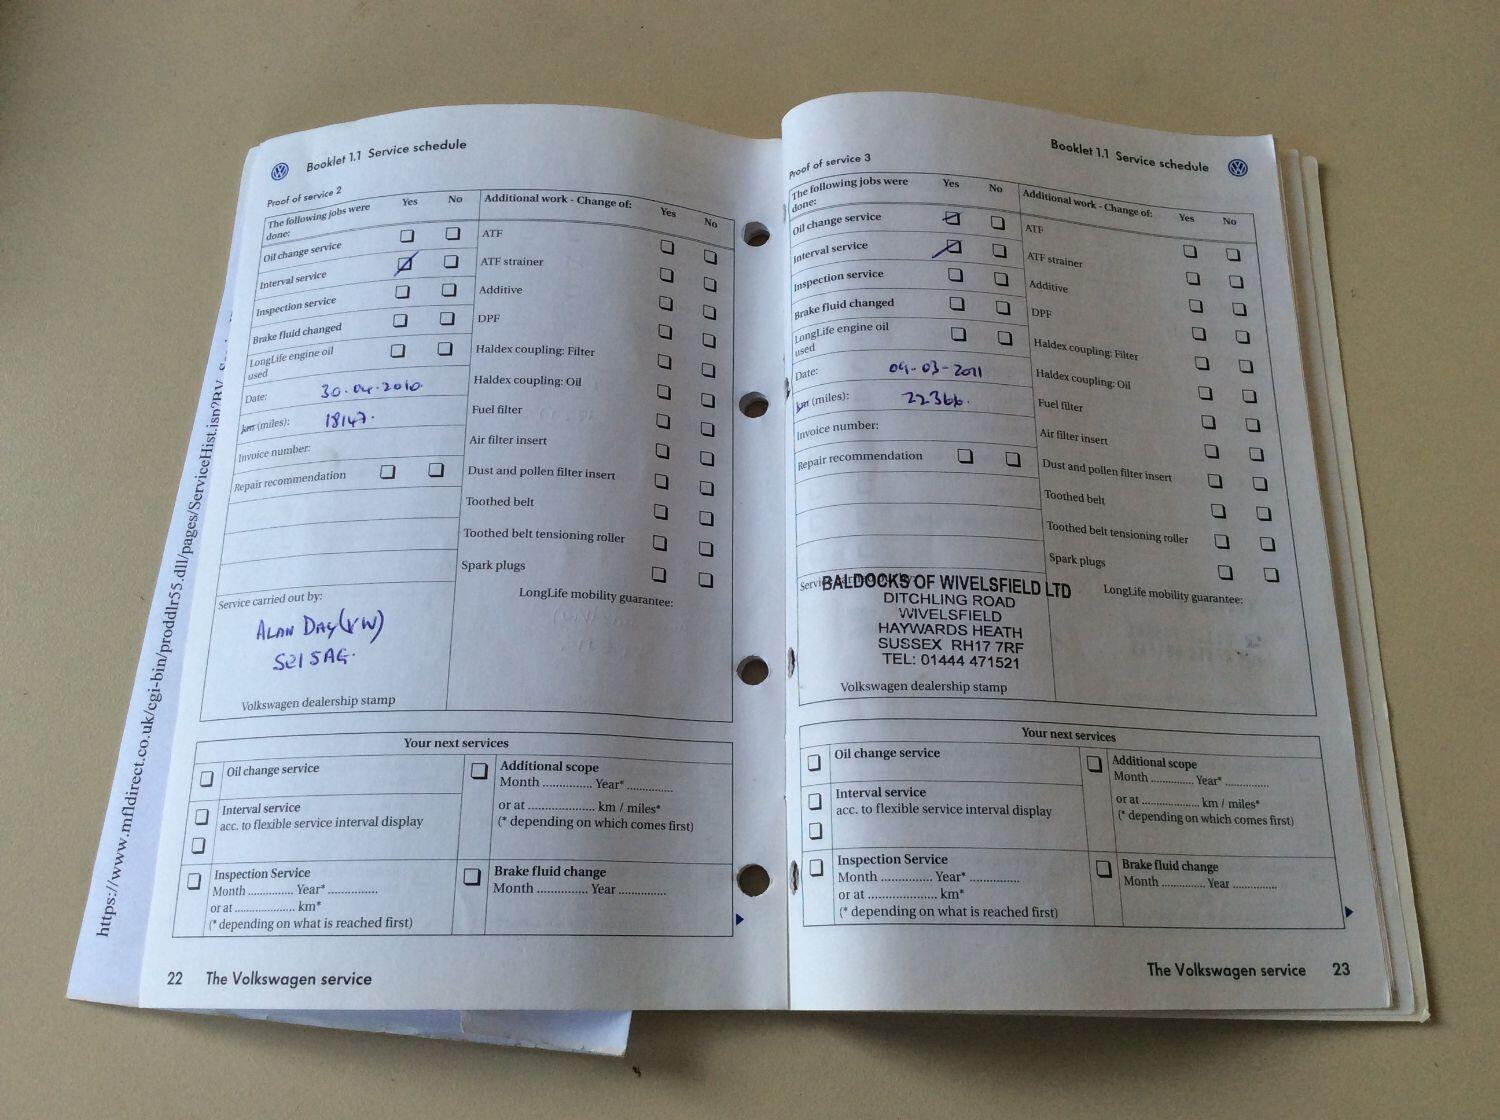 https://www.mfldirect.co.uk/cgi-bin/proddlr55.dll/pages/ServiceHist.isn?RV
Booklet 1.1 Service schedule
Proof of service 2
The following jobs were done:
Yes
No
Oil change service
Interval service
Inspection service
Brake fluid changed
LongLife engine oil
used
Date: 30.04.2010.
km (miles): 18147.
Invoice number:
Repair recommendation
Service carried out by:
ALAN DAY(VW)
SE15AG.
Volkswagen dealership stamp
Additional work - Change of:
Yes
No
ATF
ATF strainer
Additive
DPF
Haldex coupling: Filter
Haldex coupling: Oil
Fuel filter
Air filter insert
Dust and pollen filter insert
Toothed belt
Toothed belt tensioning roller
Spark plugs
LongLife mobility guarantee:
Your next services
Oil change service
Interval service
acc. to flexible service interval display
Inspection Service
Month .............. Year* ...............
or at .................... km*
(* depending on what is reached first)
Additional scope
Month ............... Year* ..............
or at .................... km / miles*
(* depending on which comes first)
Brake fluid change
Month ............... Year ...............
22 The Volkswagen service
Booklet 1.1 Service schedule
Proof of service 3
The following jobs were
done:
Yes
No
Oil change service
Interval service
Inspection service
Brake fluid changed
LongLife engine oil
used
Date: 09-03-2011
km (miles): 22366.
Invoice number:
Repair recommendation
BALDOCKS OF WIVELSFIELD LTD
DITCHLING ROAD
WIVELSFIELD
HAYWARDS HEATH
SUSSEX RH17 7RF
TEL: 01444 471521
Volkswagen dealership stamp
Additional work - Change of:
Yes
No
ATF
ATF strainer
Additive
DPF
Haldex coupling: Filter
Haldex coupling: Oil
Fuel filter
Air filter insert
Dust and pollen filter insert
Toothed belt
Toothed belt tensioning roller
Spark plugs
LongLife mobility guarantee:
Your next services
Oil change service
Interval service
acc. to flexible service interval display
Inspection Service
Month ............... Year* ...............
or at .................... km*
(* depending on what is reached first)
Additional scope
Month ............. Year* .............
or at .................... km / miles*
(* depending on which comes first)
Brake fluid change
Month ............. Year .............
The Volkswagen service 23